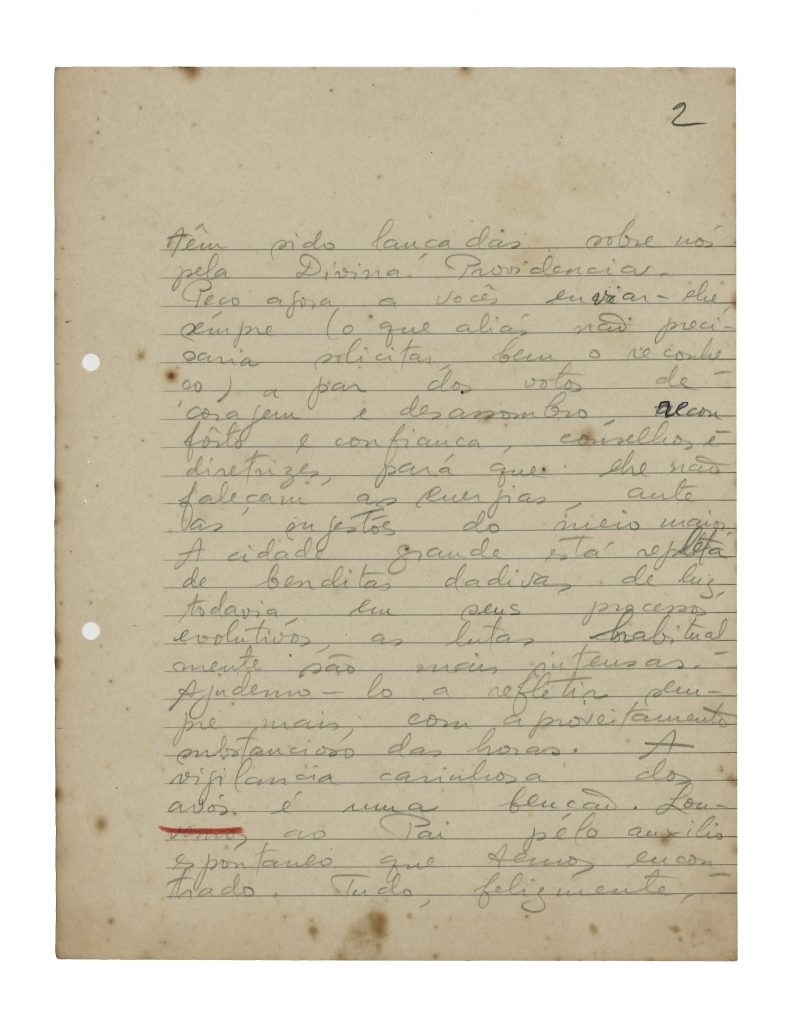 2
têm sido lançadas sobre nós
pela Divina Providencia.
Peço agora a vocês enviar-lhe
sempre (o que aliás não preci-
saria solicitar, bem o reconhe
ço) a par dos votos de -
coragem e desassombro, recon
fôrto e confiança, conselhos e -
diretrizes, para que lhe não
faleçam as energias, ante
as sujestões do meio maior.
A cidade grande está repleta
de benditas dadivas de luz,
todavia, em seus processos
evolutivos, as lutas habitual
mente são mais intensas. -
Ajudemo-lo a refletir sem-
pre mais, com aproveitamento
substancioso das horas. A
vigilancia carinhosa dos
avós é uma benção. Lou-
vemos ao Pai pelo auxilio
espontaneo que temos encon
trado. Tudo, felizmente, -